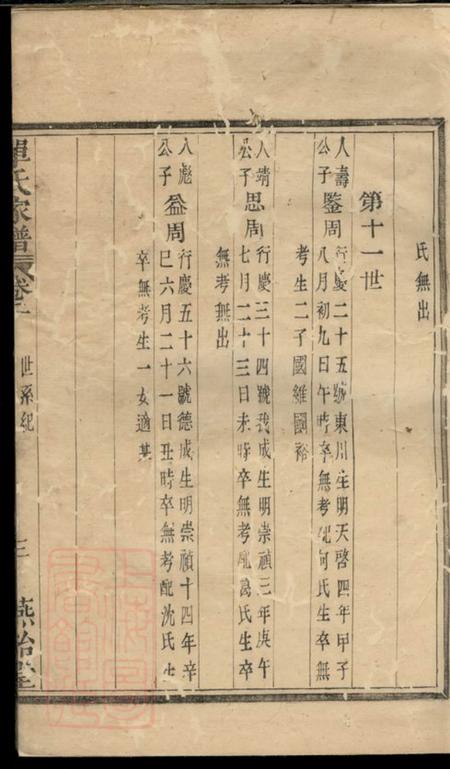 氏無出
第十一世
人壽
公子
鑒周
行慶二十五號東川生明天啓四年甲子
八月初九日午時卒無考配何氏生卒無
考生二子國維國裕
人靖
公子
思周
行慶三十四號我成生明崇禎三年庚午
七月二十三日未時卒無考配葛氏生卒
無考無出
人彪
公子
益周
行慶五十六號德成生明崇禎十四年辛
巳六月二十一日丑時卒無考配沈氏生
卒無考生一女適某
氏家譜 卷 世系紀 三 燕詒堂